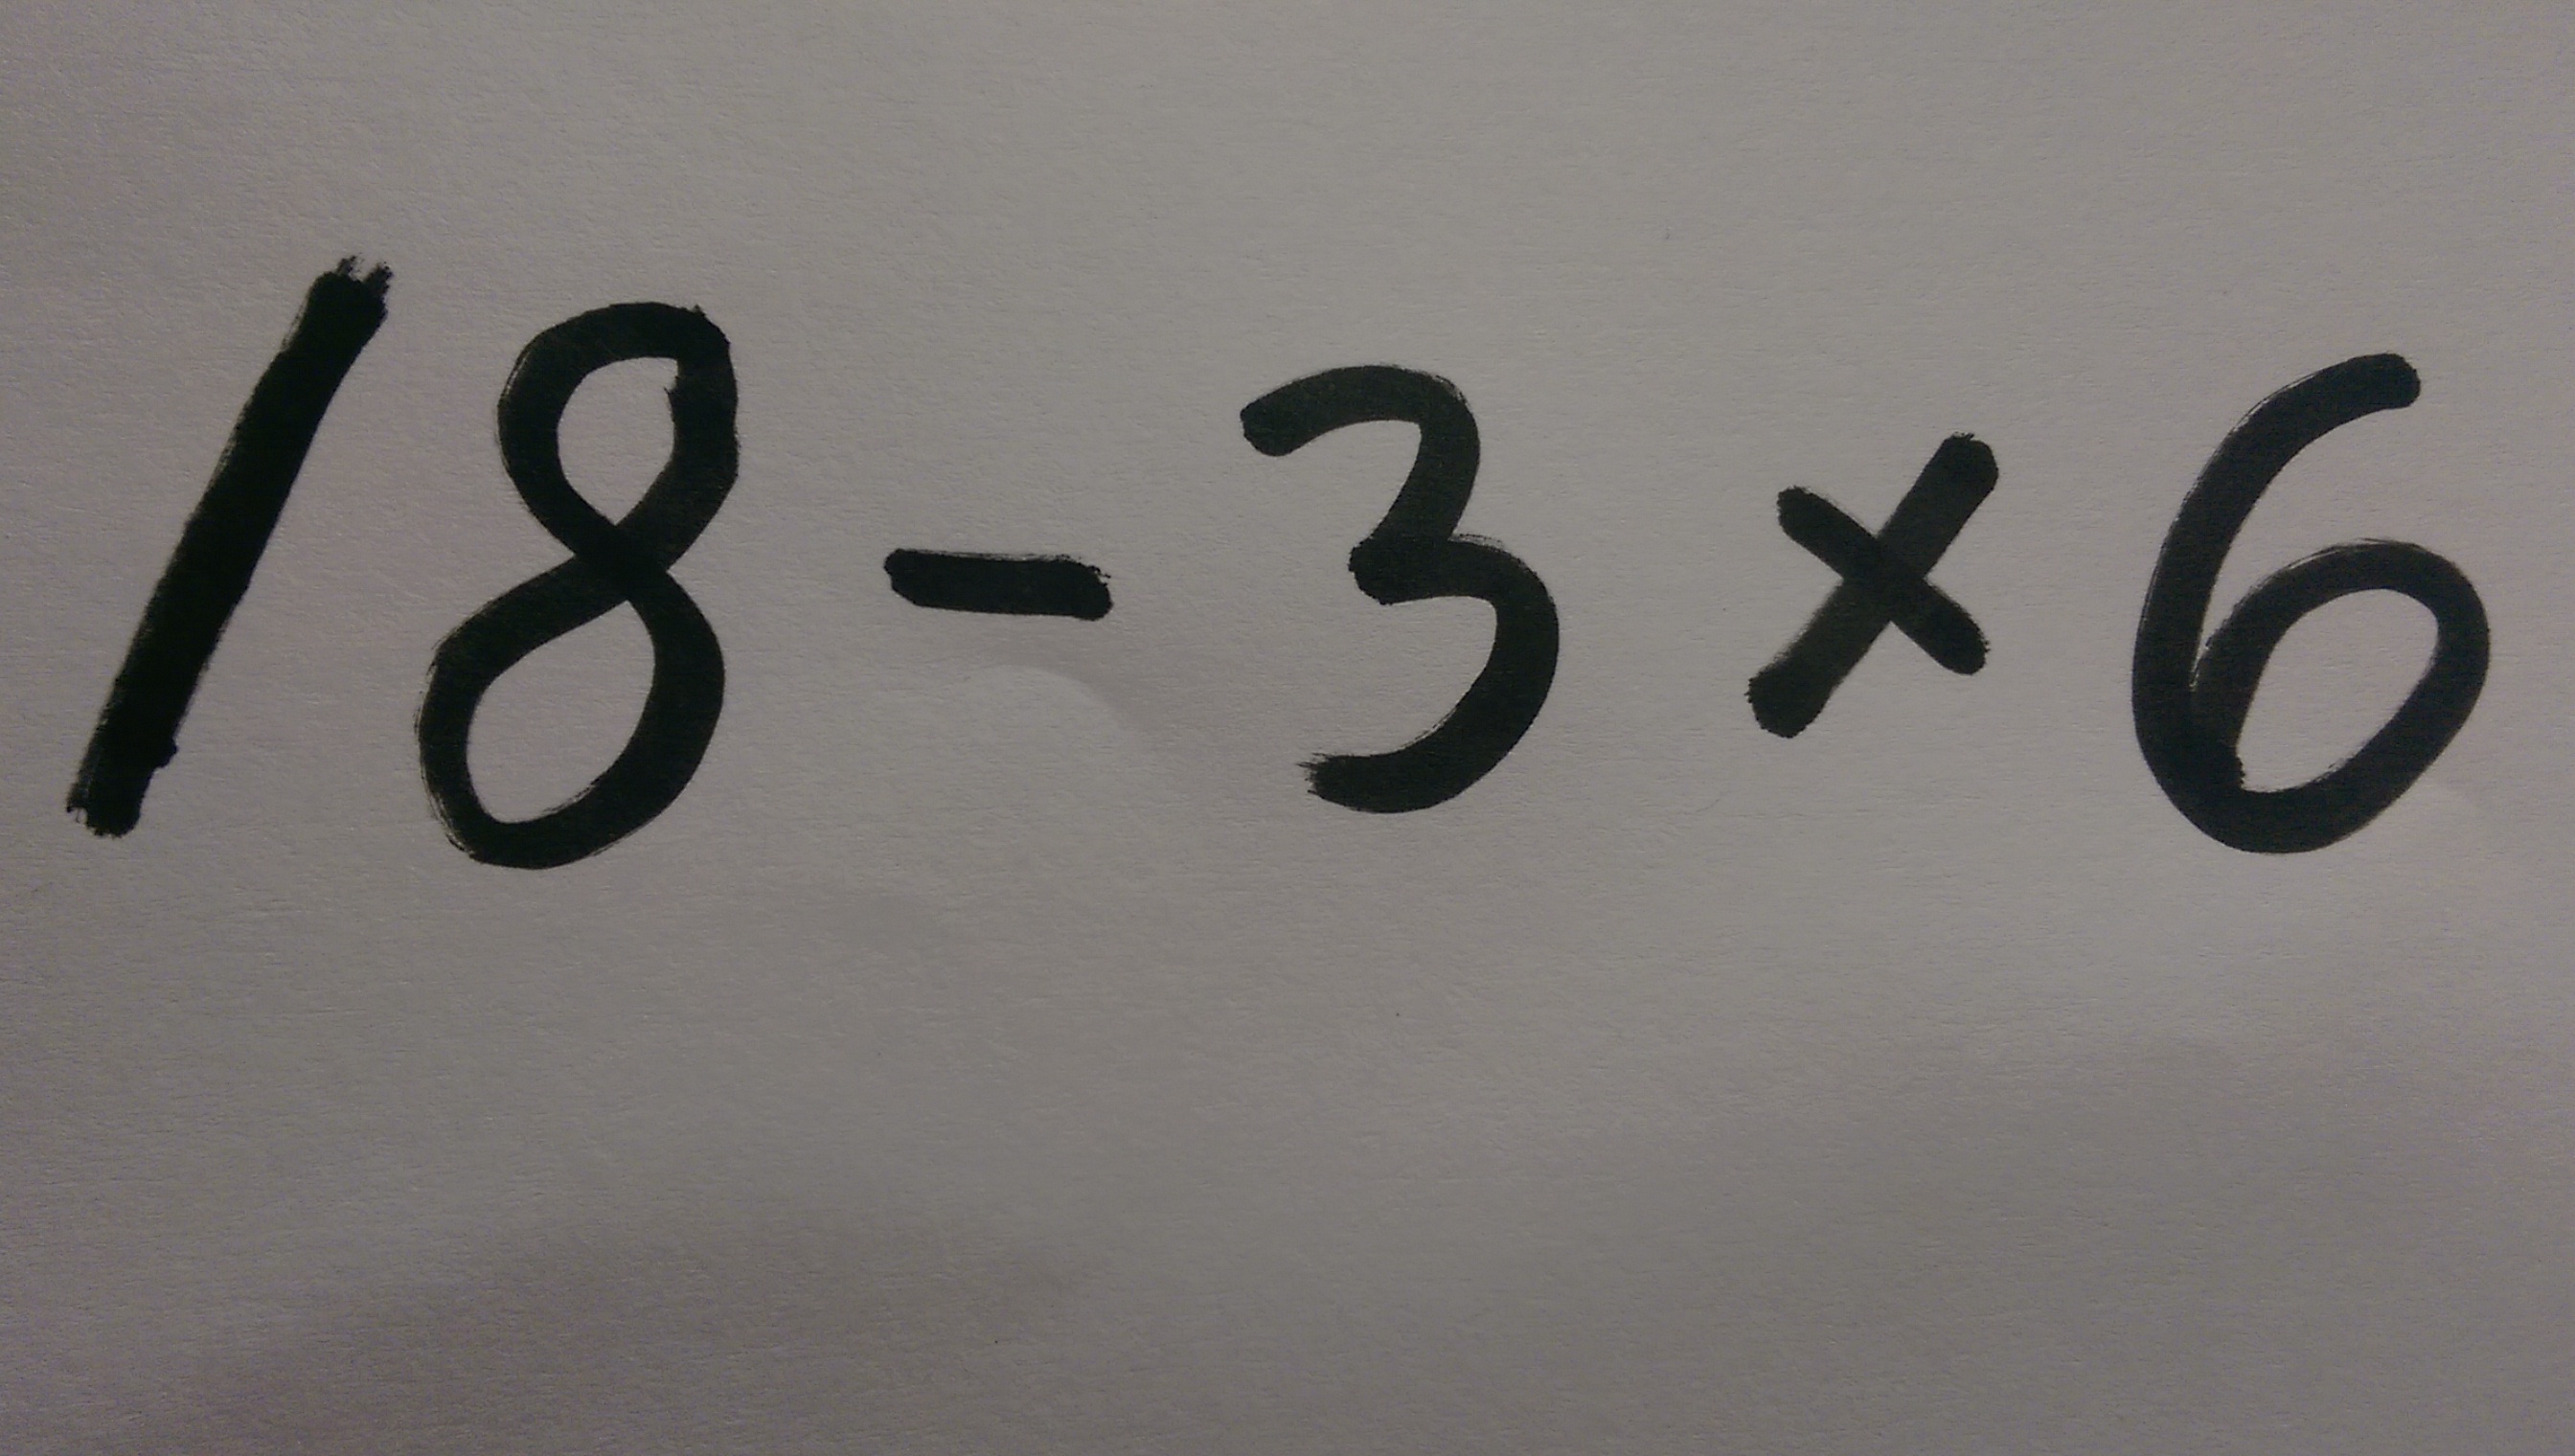 18-3×6